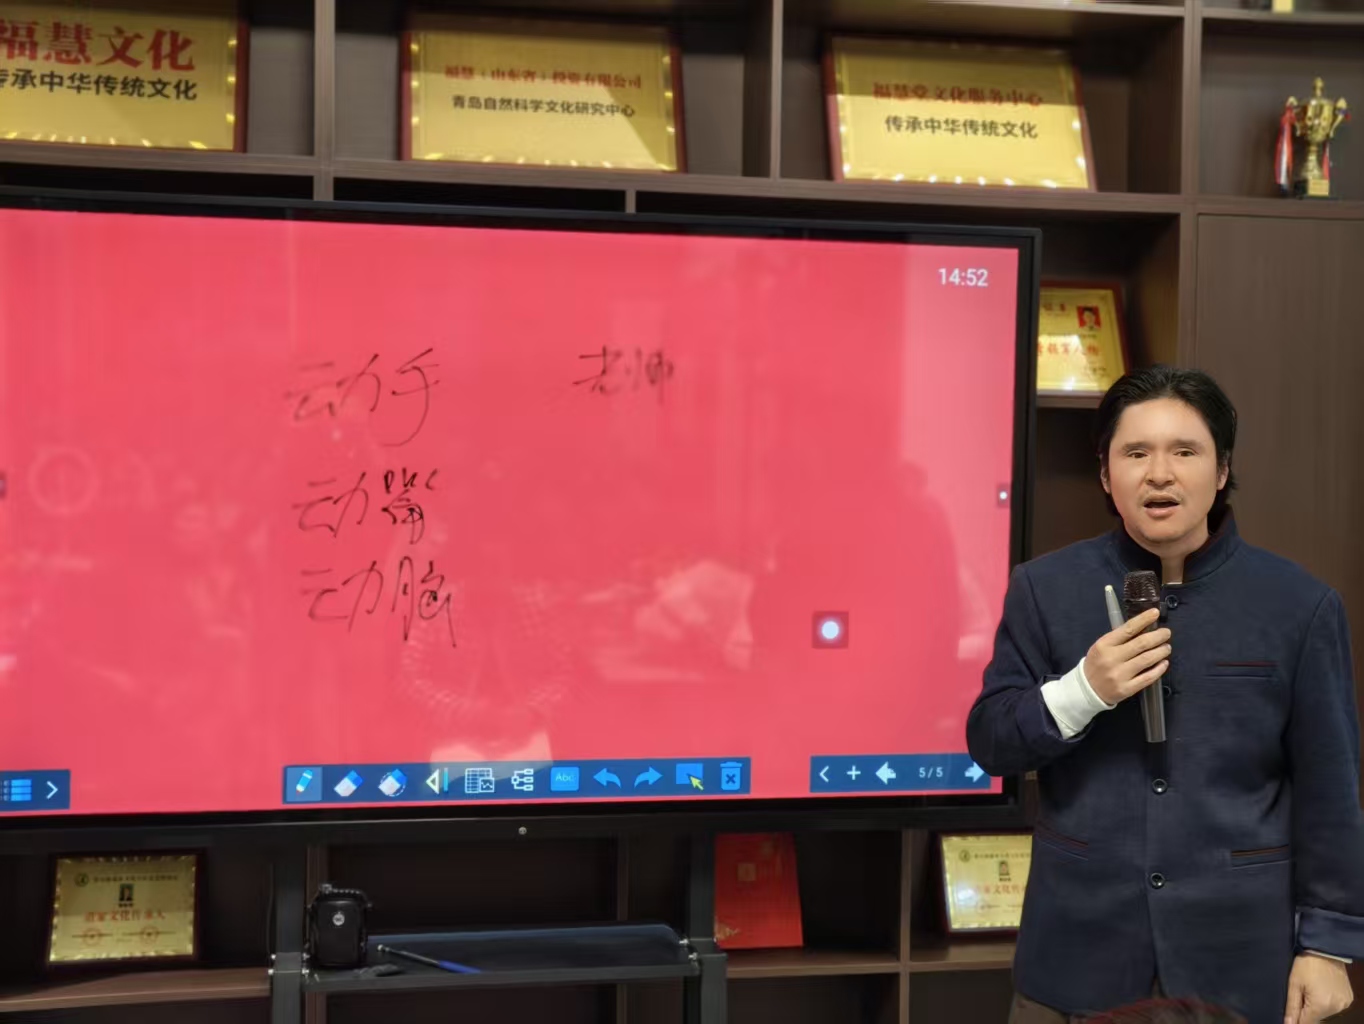 福慧文化
传承中华传统文化
福慧（山东省）投资有限公司
青岛自然科学文化研究中心
福慧堂文化服务中心
传承中华传统文化
14:52
动手 老师
动嘴
动脑
Abc
5/5
道家文化传承人